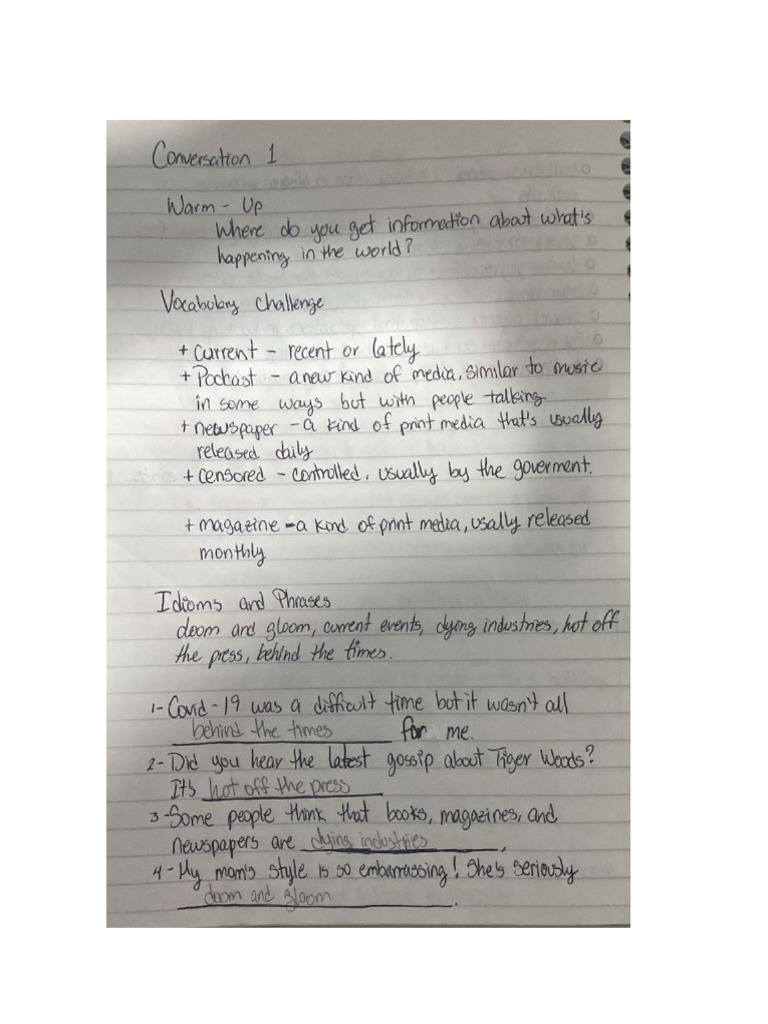 Conversation 1
Warm - Up
Where do you get information about what's
happening in the world?
Vocabulary challenge
+ current - recent or lately
+ Podcast - a new kind of media. similar to music
in some ways but with people talking
+ newspaper - a kind of print media that's usually
released daily
+ censored - controlled, usually by the goverment.
+ magazine - a kind of print media, usally released
monthly
Idioms and Phrases
doom and gloom, current events, dying industries, hot off
the press, behind the times.
1- Covid-19 was a difficult time but it wasn't all
behind the times for me.
2- Did you hear the latest gossip about Tiger Woods?
It's hot off the press
3- Some people think that books, magazines, and
newspapers are dying industries.
4- My mom's style is so embarrassing! She's seriously
doom and gloom.